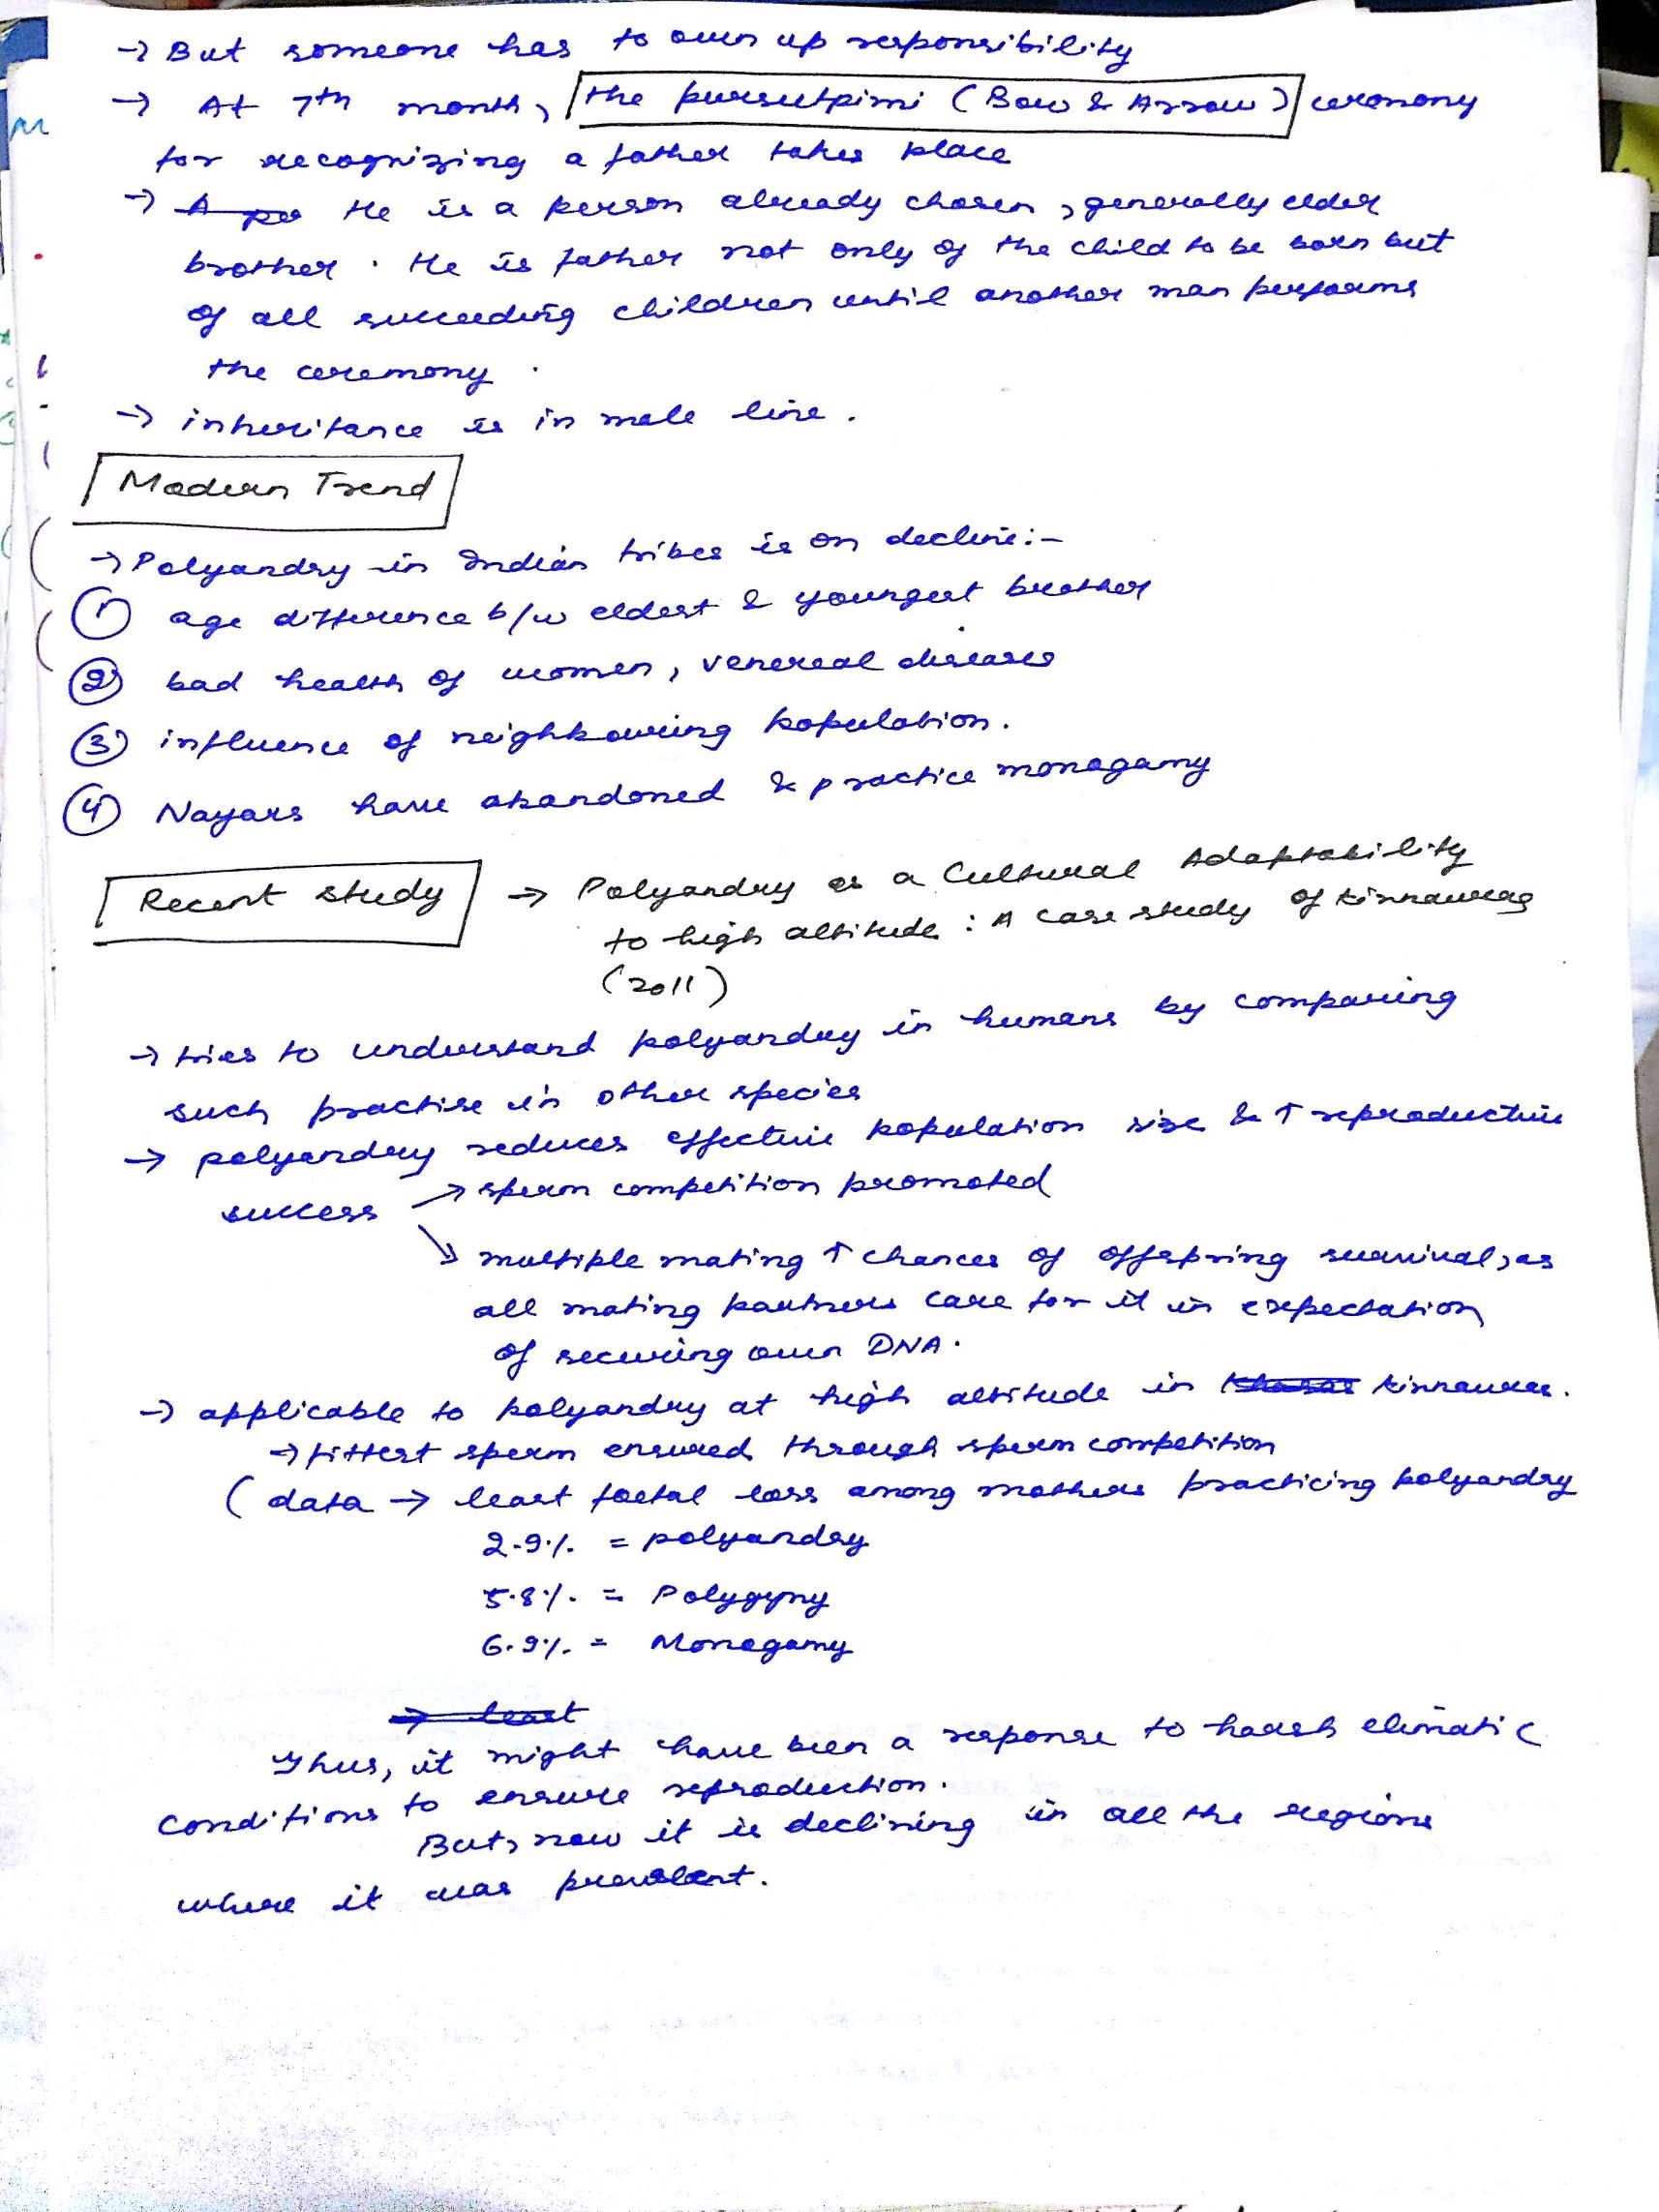 → But someone has to own up responsibility
→ At 7th month, the pursutpimi (Bow & Arrow) ceremony
for recognizing a father takes place
→ He is a person already chosen, generally elder
brother. He is father not only of the child to be born but
of all succeeding children until another man performs
the ceremony.
→ inheritance is in male line.
Modern Trend
→ Polyandry in Indian tribes is on decline:-
① age difference b/w eldest & youngest brother
② bad health of women, venereal diseases
③ influence of neighbouring population.
④ Nayars have abandoned & practice monogamy
Recent study → Polyandry as a Cultural Adaptability
to high altitude: A case study of Kinnauras
(2011)
→ tries to understand polyandry in humans by comparing
such practise in other species
→ polyandry reduces effective population size & ↑ reproductive
success → sperm competition promoted
↘ multiple mating ↑ chances of offspring survival, as
all mating partners care for it in expectation
of securing own DNA.
→ applicable to polyandry at high altitude in Kinnauras.
→ fittest sperm ensured through sperm competition
(data → least foetal loss among mothers practicing polyandry
2.9% = polyandry
5.8% = Polygyny
6.9% = Monogamy
→ least
Thus, it might have been a response to harsh climatic
conditions to ensure reproduction.
But, now it is declining in all the regions
where it was prevalent.